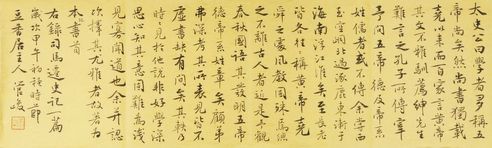 太史公曰學者多稱五
帝尚矣然尚書獨載
堯以來而百家言黃帝
其文不雅馴薦紳先生
難言之孔子所傳宰
予問五帝德及帝系
姓儒者或不傳余嘗西
至空峒北過涿鹿東漸于
海南浮江淮矣至長老
皆各往往稱黃帝堯
舜之處風教固殊焉總
之不離古文者近是予觀
春秋國語其發明五帝
德帝系姓章矣顧弟
弗深考其所表見皆不
虛書缺有間矣其軼乃
時時見於他說非好學深
思心知其意固難為淺
見寡聞道也余并論
次擇其言尤雅者故著為
本書首
右錄司馬遷史記一篇
歲次甲午初秋時節
書居主人 管峻